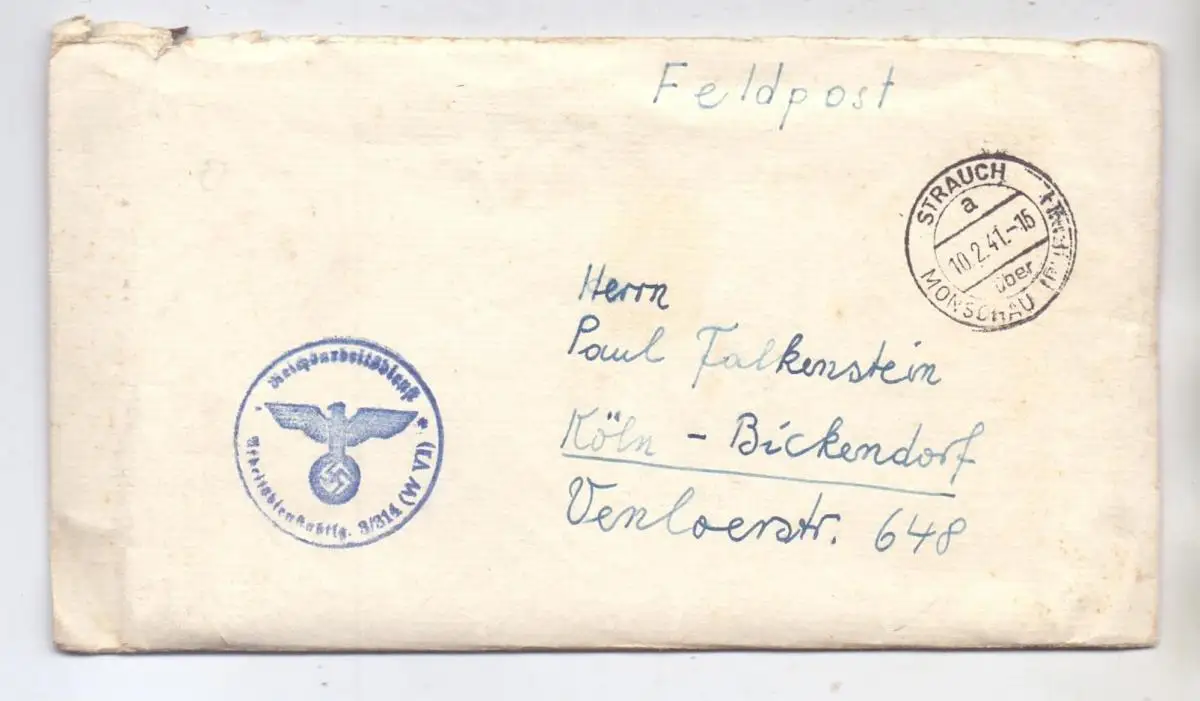 Feldpost
STRAUCH
a
10.2.41.-16
über
MONSCHAU
Herrn
Paul Falkenstein
Köln - Bickendorf
Venloerstr. 648
Reichsarbeitsdienst *
Arbeitsdienstabtlg. 3/314 (W VA)